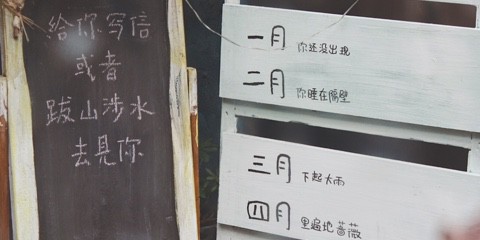 給你写信
或者
跋山涉水
去見你
一月 你还没出现
二月 你睡在隔壁
三月 下起大雨
四月 里遍地蔷薇